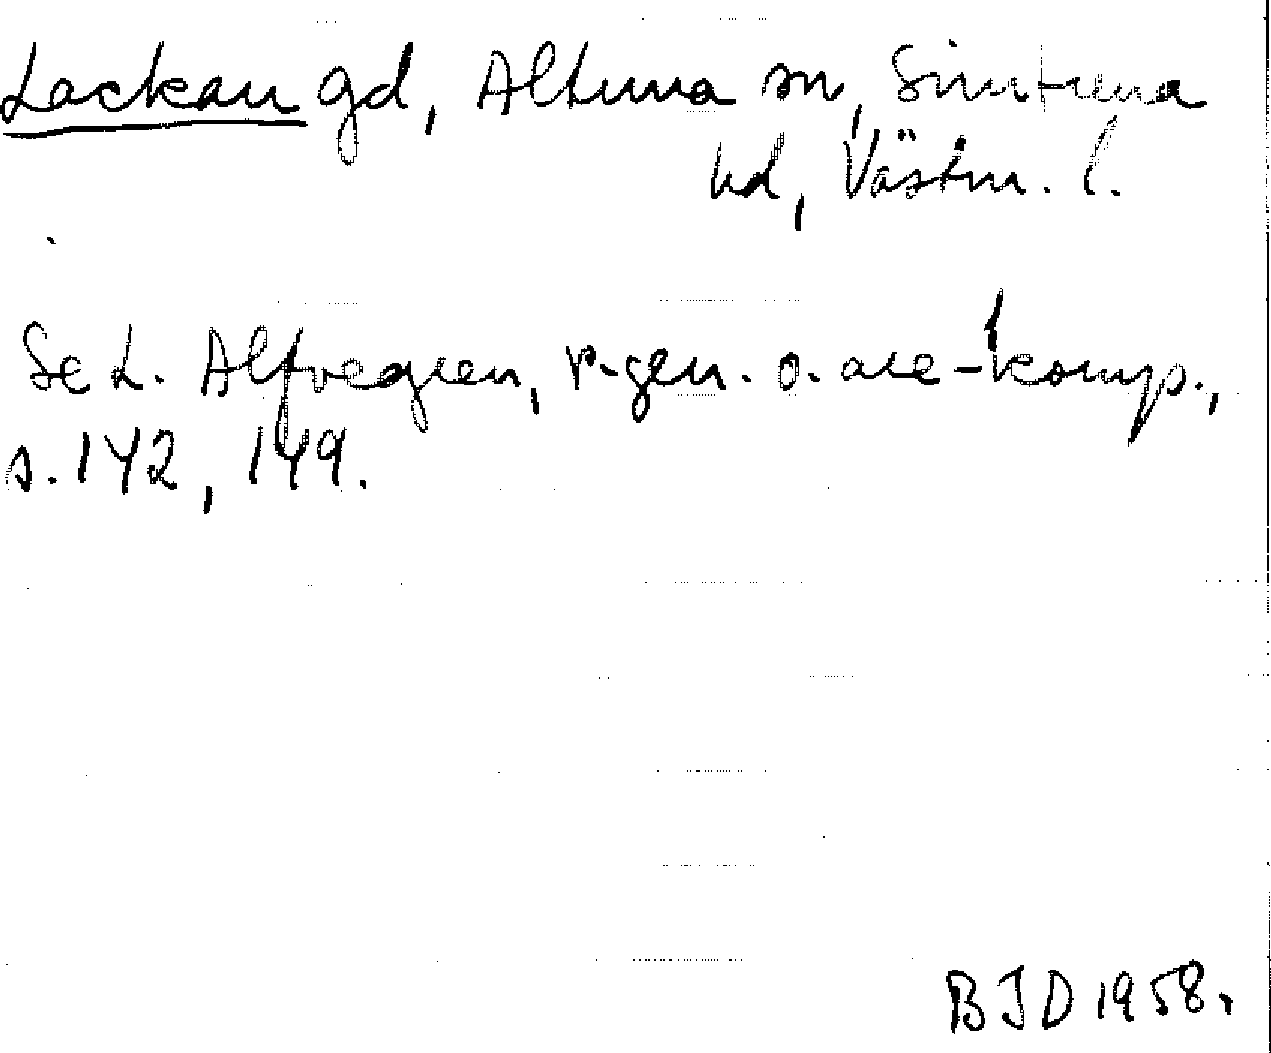 Lackau gd, Altuna sn, Simtuna
hd, Västm. l.
Se L. Alfvegren, r-gen. o. are-komp.,
s. 142, 149.
BJD 1958.